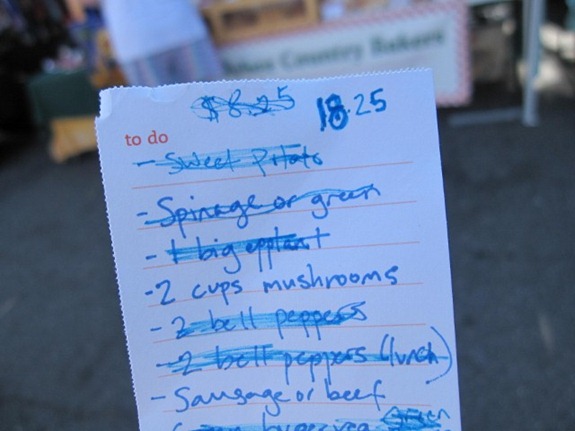 Country Bakers
$8.25 18.25
to do
- Sweet Potato
- Spinage or green
- 1 big epplant
- 2 cups mushrooms
- 2 bell peppers
- 2 bell peppers (lunch)
- Sausage or beef